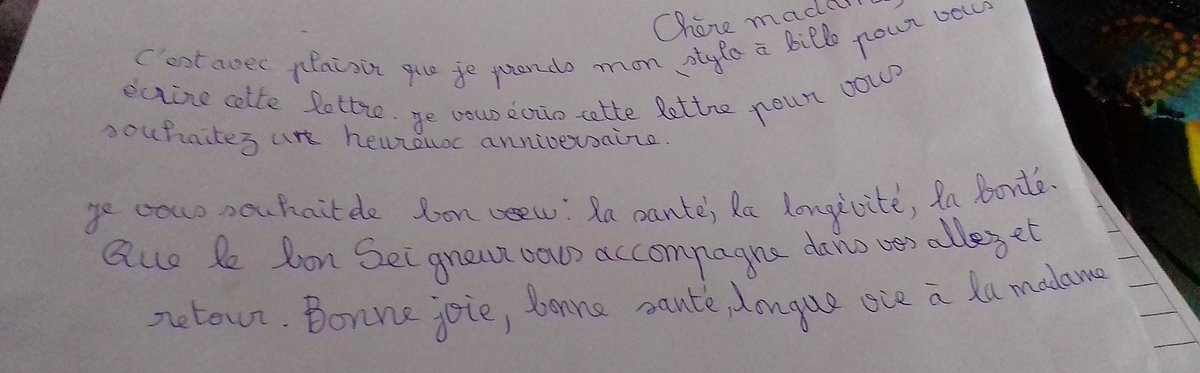 Chère madame,
C'est avec plaisir que je prends mon stylo à bille pour vous
écrire cette lettre. je vous écris cette lettre pour vous
souhaitez un heureux anniversaire.
je vous souhait de bon voew: la santé, la longévité, la bonté.
Que le bon Seigneur vous accompagne dans vos allez et
retour. Bonne joie, bonne santé, longue vie à la madame